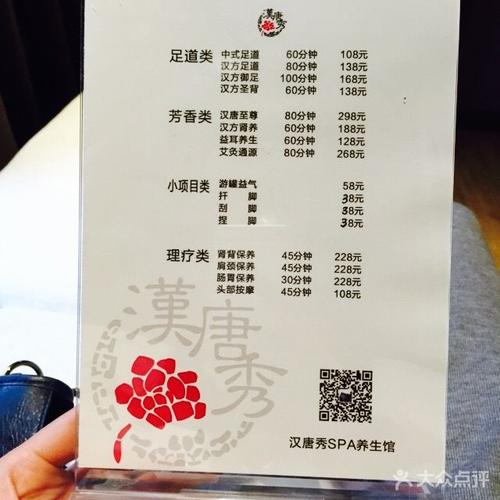 漢唐秀
足道类 中式足道 60分钟 108元
汉方足道 80分钟 138元
汉方御足 100分钟 168元
汉方圣背 60分钟 138元
芳香类 汉唐至尊 80分钟 298元
汉方肾养 60分钟 188元
益耳养生 60分钟 128元
艾灸通源 80分钟 268元
小项目类 游罐益气 58元
扦 脚 38元
刮 脚 38元
捏 脚 38元
理疗类 肾背保养 45分钟 228元
肩颈保养 45分钟 228元
肠胃保养 30分钟 228元
头部按摩 45分钟 108元
漢唐秀
汉唐秀SPA养生馆
大众点评